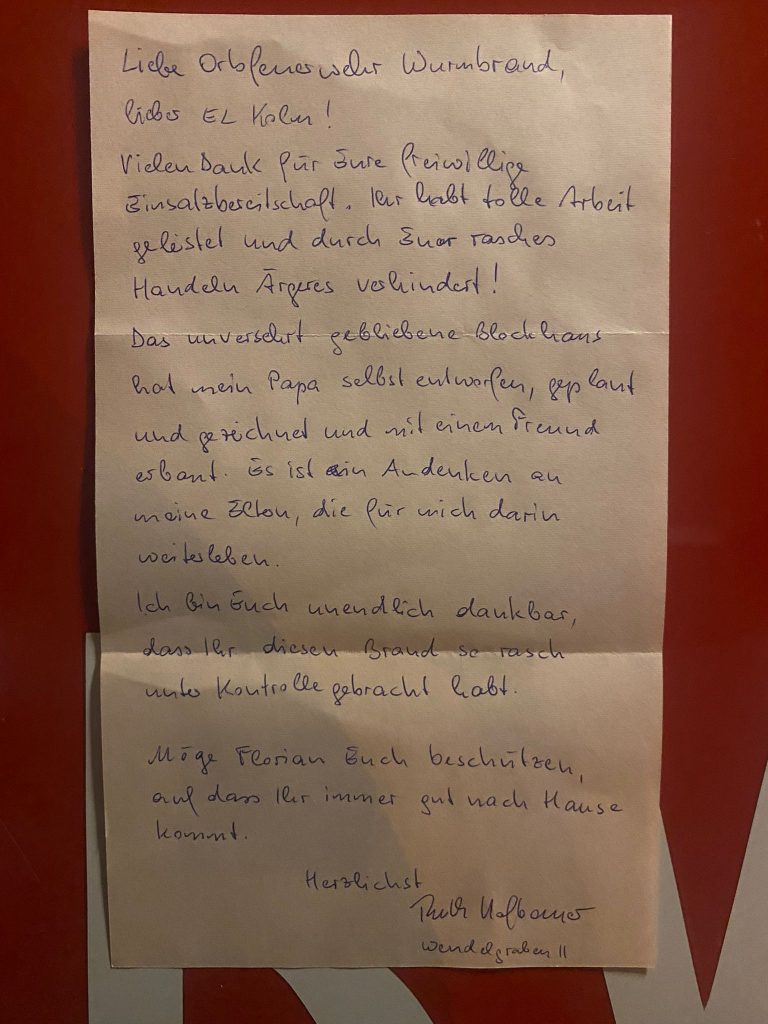 Liebe Ortsfeuerwehr Wurmbrand,
lieber EL Kolm!
Vielen Dank für Eure freiwillige
Einsatzbereitschaft. Ihr habt tolle Arbeit
geleistet und durch Euer rasches
Handeln Ärgeres verhindert!
Das unversehrt gebliebene Blockhaus
hat mein Papa selbst entworfen, geplant
und gezeichnet und mit einem Freund
erbaut. Es ist ein Andenken an
meine Eltern, die für mich darin
weiterleben.
Ich bin Euch unendlich dankbar,
dass Ihr diesen Brand so rasch
unter Kontrolle gebracht habt.
Möge Florian Euch beschützen,
auf dass Ihr immer gut nach Hause
kommt.
Herzlichst
Hofbauer
Wendelgraben 11